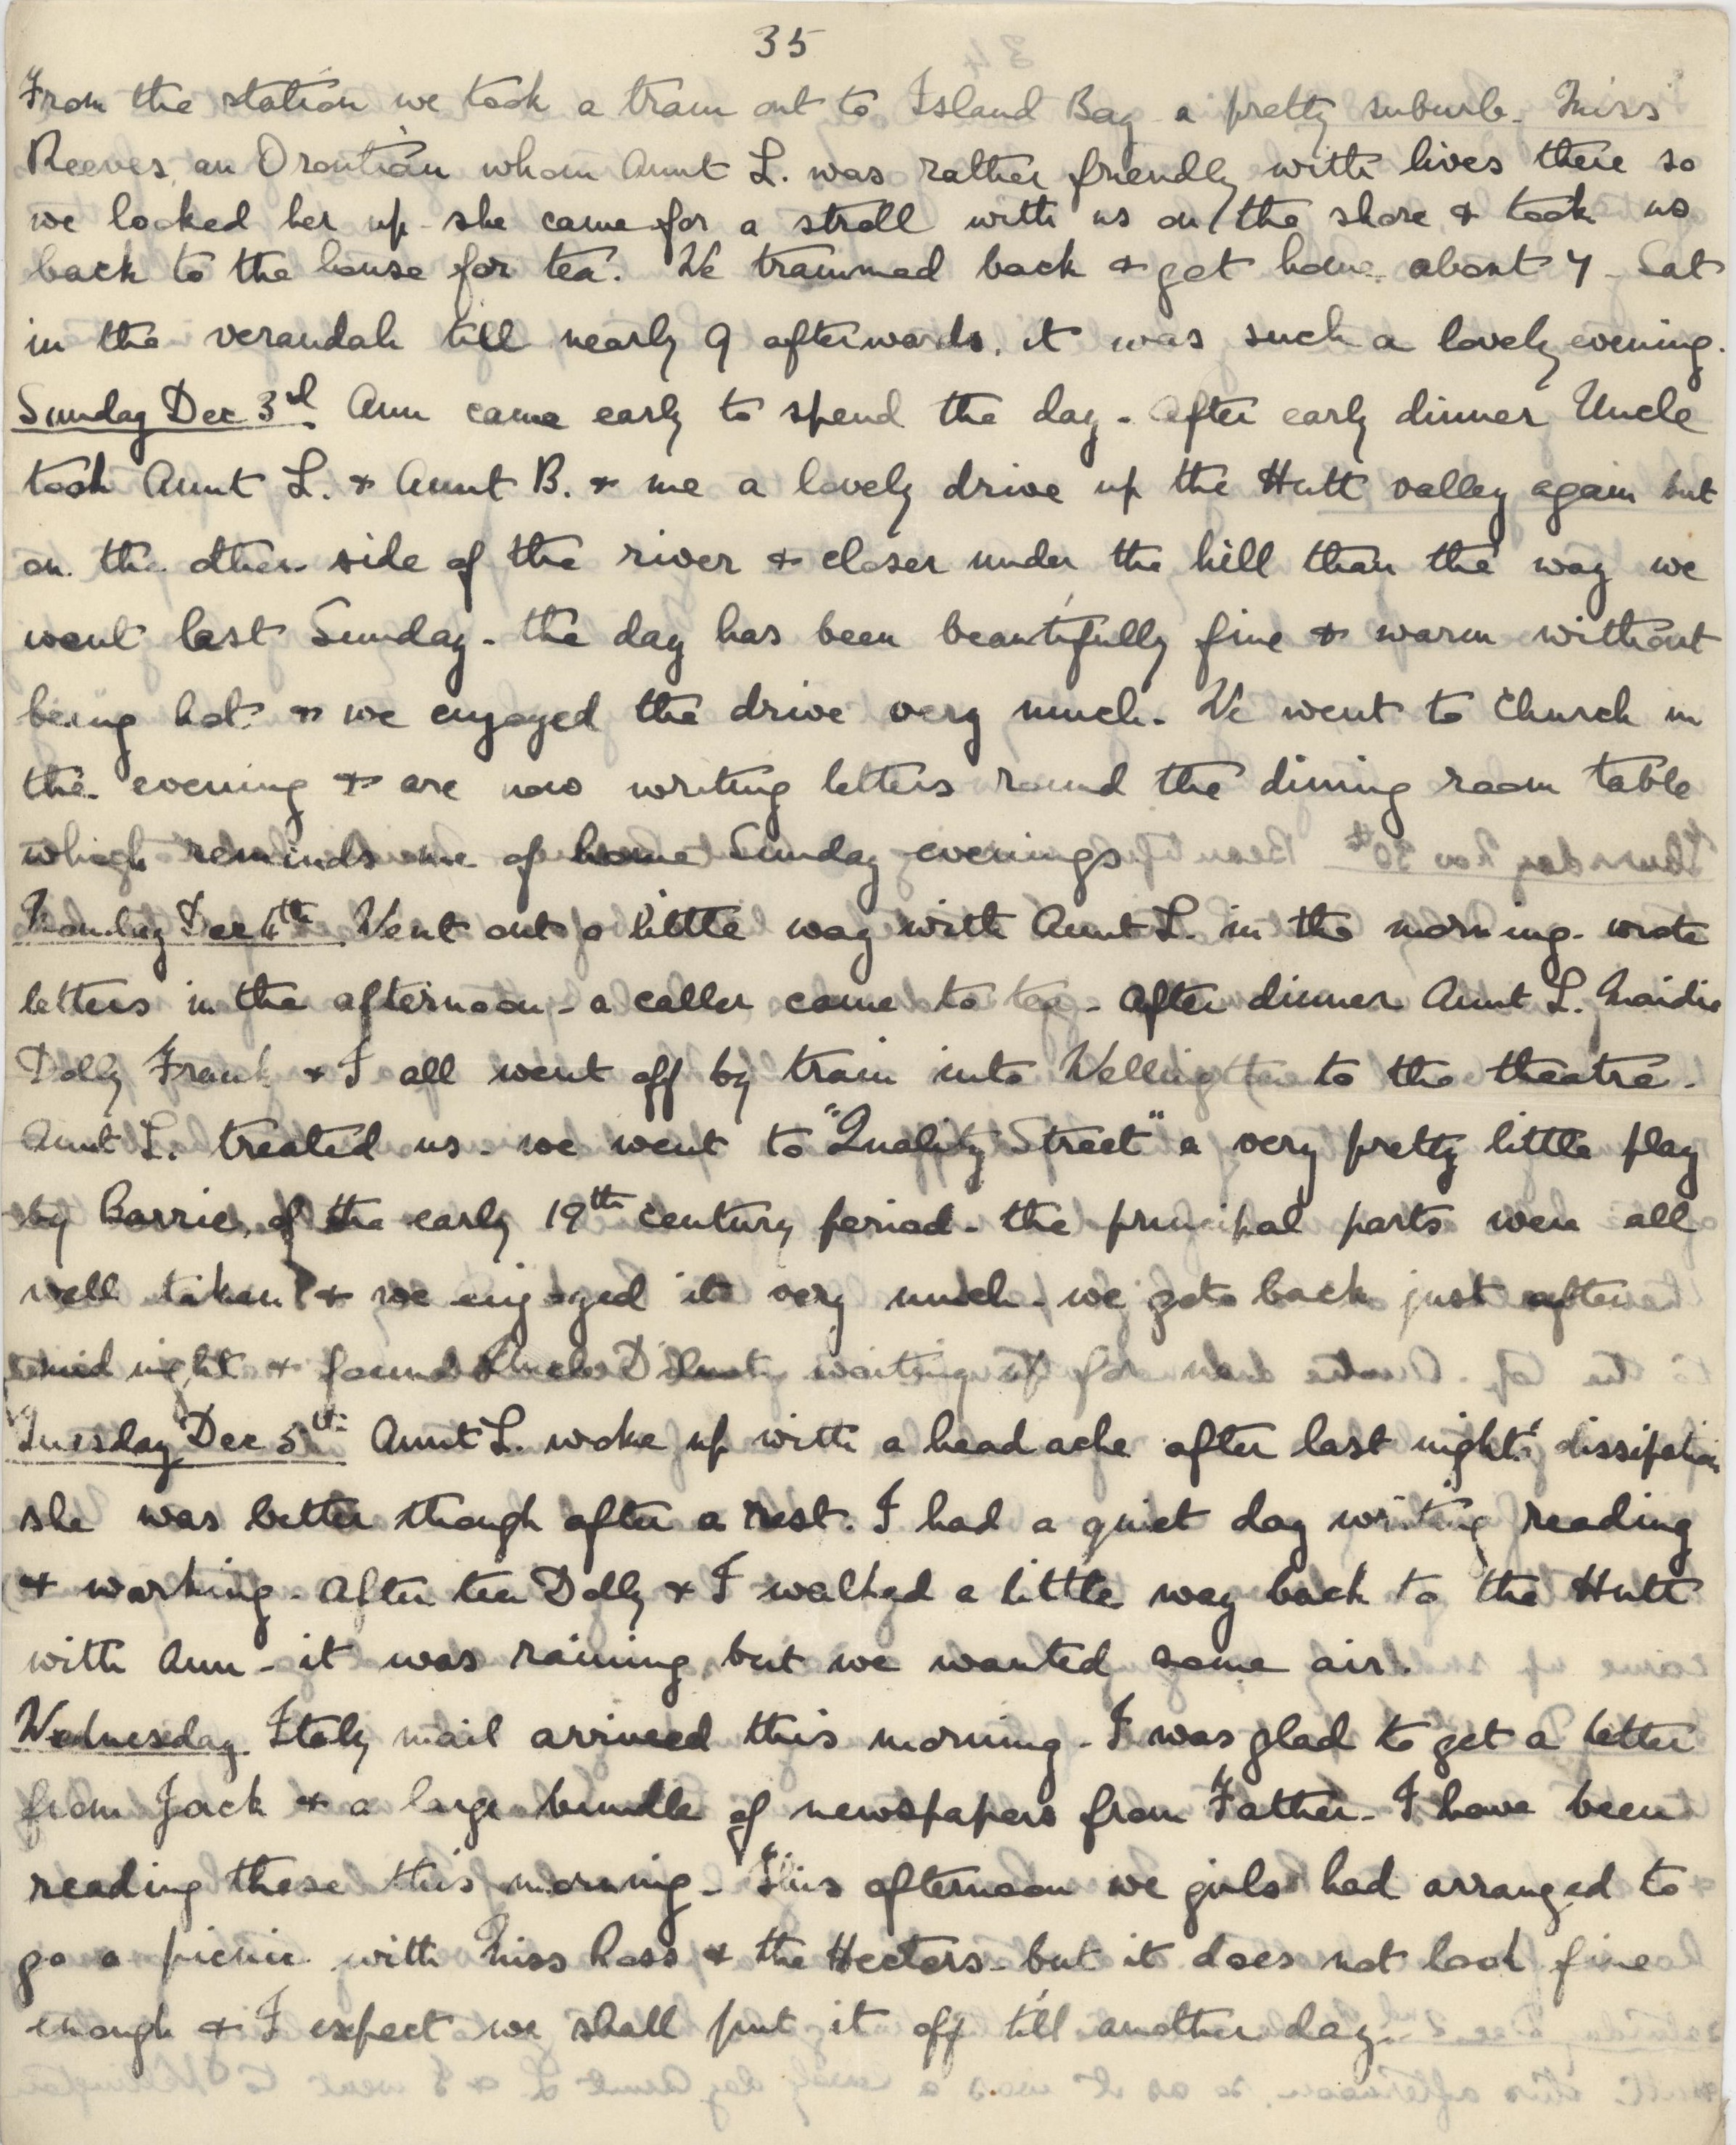 35
From the station we took a tram out to Island Bay a pretty suburb. Miss
Reeves, an Orontian whom Aunt L. was rather friendly with lives there so
we looked her up - she came for a stroll with us on the shore & took us
back to the house for tea. We trammed back & got home about 7 - Sat
in the verandah till nearly 9 afterwards, it was such a lovely evening.
Sunday Dec 3rd. Ann came early to spend the day - After early dinner Uncle
took Aunt L. & Aunt B. & me a lovely drive up the Hutt valley again but
on the other side of the river & closer under the hill than the way we
went last Sunday - the day has been beautifully fine & warm without
being hot & we enjoyed the drive very much - We went to Church in
the evening & are now writing letters round the dining room table
which reminds me of home Sunday evenings
Monday Dec 4th Went out a little way with Aunt L. in the morning - wrote
letters in the afternoon - a caller came to tea - After dinner Aunt L. Maidie
Dolly Frank & I all went off by train into Wellington to the theatre -
Aunt L. treated us - we went to "Quality Street" a very pretty little play
by Barrie, of the early 19th century period - the principal parts were all
well taken & we enjoyed it very much - we got back just after
midnight & found Uncle waiting up for us
Tuesday Dec 5th Aunt L. woke up with a headache after last night's dissipation
she was better though after a rest. I had a quiet day writing reading
& working - After tea Dolly & I walked a little way back to the Hutt
with Ann - it was raining but we wanted some air.
Wednesday. Italy mail arrived this morning - I was glad to get a letter
from Jack & a large bundle of newspapers from Father - I have been
reading these this morning - This afternoon we girls had arranged to
go a picnic with Miss Ross & the Hectors - but it does not look fine
enough & I expect we shall put it off till another day.